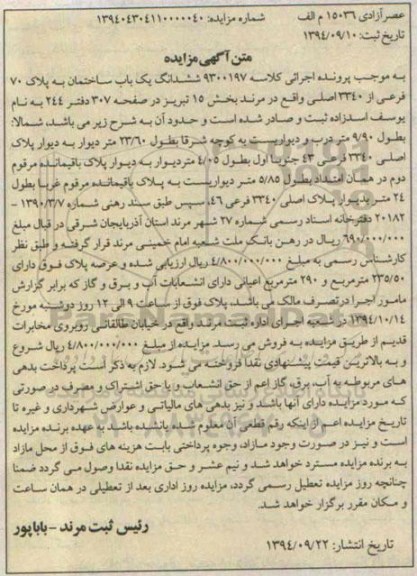 عصرآزادی ۱۵۰۳۶ م الف شماره مزایده: ۱۳۹۴۰۴۳۰۴۱۱۰۰۰۰۰۴۰
تاریخ ثبت: ۱۳۹۴/۰۹/۱۰
متن آگهی مزایده
به موجب پرونده اجرائی کلاسه ۹۳۰۰۱۹۷ ششدانگ یک باب ساختمان به پلاک ۷۰
فرعی از ۳۳۴۰ اصلی واقع در مرند بخش ۱۵ تبریز در صفحه ۳۰۷ دفتر ۲۴۴ به نام
یوسف اسدزاده ثبت و صادر شده است و حدود آن به شرح زیر می باشد، شمالا:
بطول ۹/۹۰ متر درب و دیواریست به کوچه شرقا بطول ۲۳/۶۰ متر دیوار به دیوار پلاک
اصلی ۳۳۴۰ فرعی ۴۳ جنوبا اول بطول ۴/۰۵ متردیوار به دیوار پلاک باقیمانده مرقوم
دوم در همان امتداد بطول ۵/۸۵ متر دیواریست به پلاک باقیمانده مرقوم غربا بطول
۲۴ متر بدیوار پلاک اصلی ۳۳۴۰ فرعی ۴۶، سپس طبق سند رهنی شماره ۱۳۹۰/۳/۷ -
۲۰۱۸۲ دفترخانه اسناد رسمی شماره ۲۷ شهر مرند استان آذربایجان شرقی در قبال مبلغ
۶۹۰/۰۰۰/۰۰۰ ریال در رهن بانک ملت شعبه امام خمینی مرند قرار گرفته و طبق نظر
کارشناس رسمی به مبلغ ۴/۸۰۰/۰۰۰/۰۰۰ ریال ارزیابی شده و عرصه پلاک فوق دارای
۲۳۵/۵۰ مترمربع و ۲۹۰ مترمربع اعیانی دارای انشعابات آب و برق و گاز که برابر گزارش
مامور اجرا در تصرف مالک می باشد، پلاک فوق از ساعت ۹ الی ۱۲ روز دوشنبه مورخ
۱۳۹۴/۱۰/۱۴ در شعبه اجرای اداره ثبت مرند واقع در خیابان طالقانی روبروی مخابرات
قدیم از طریق مزایده به فروش می رسد. مزایده از مبلغ ۴/۸۰۰/۰۰۰/۰۰۰ ریال شروع
و به بالاترین قیمت پیشنهادی نقدا فروخته می شود. لازم به ذکر است پرداخت بدهی
های مربوطه به آب، برق، گاز اعم از حق انشعاب و یا حق اشتراک و مصرف در صورتی
که مورد مزایده دارای آنها باشد و نیز بدهی های مالیاتی و عوارض شهرداری و غیره تا
تاریخ مزایده اعم از اینکه رقم قطعی آن معلوم شده یا نشده باشد به عهده برنده مزایده
است و نیز در صورت وجود مازاد، وجوه پرداختی بابت هزینه های فوق از محل مازاد
به برنده مزایده مسترد خواهد شد و نیم عشر و حق مزایده نقدا وصول می گردد ضمنا
چنانچه روز مزایده تعطیل رسمی گردد، مزایده روز اداری بعد از تعطیلی در همان ساعت
و مکان مقرر برگزار خواهد شد.
رئیس ثبت مرند - باباپور
تاریخ انتشار: ۱۳۹۴/۰۹/۲۲
ParsNamadData